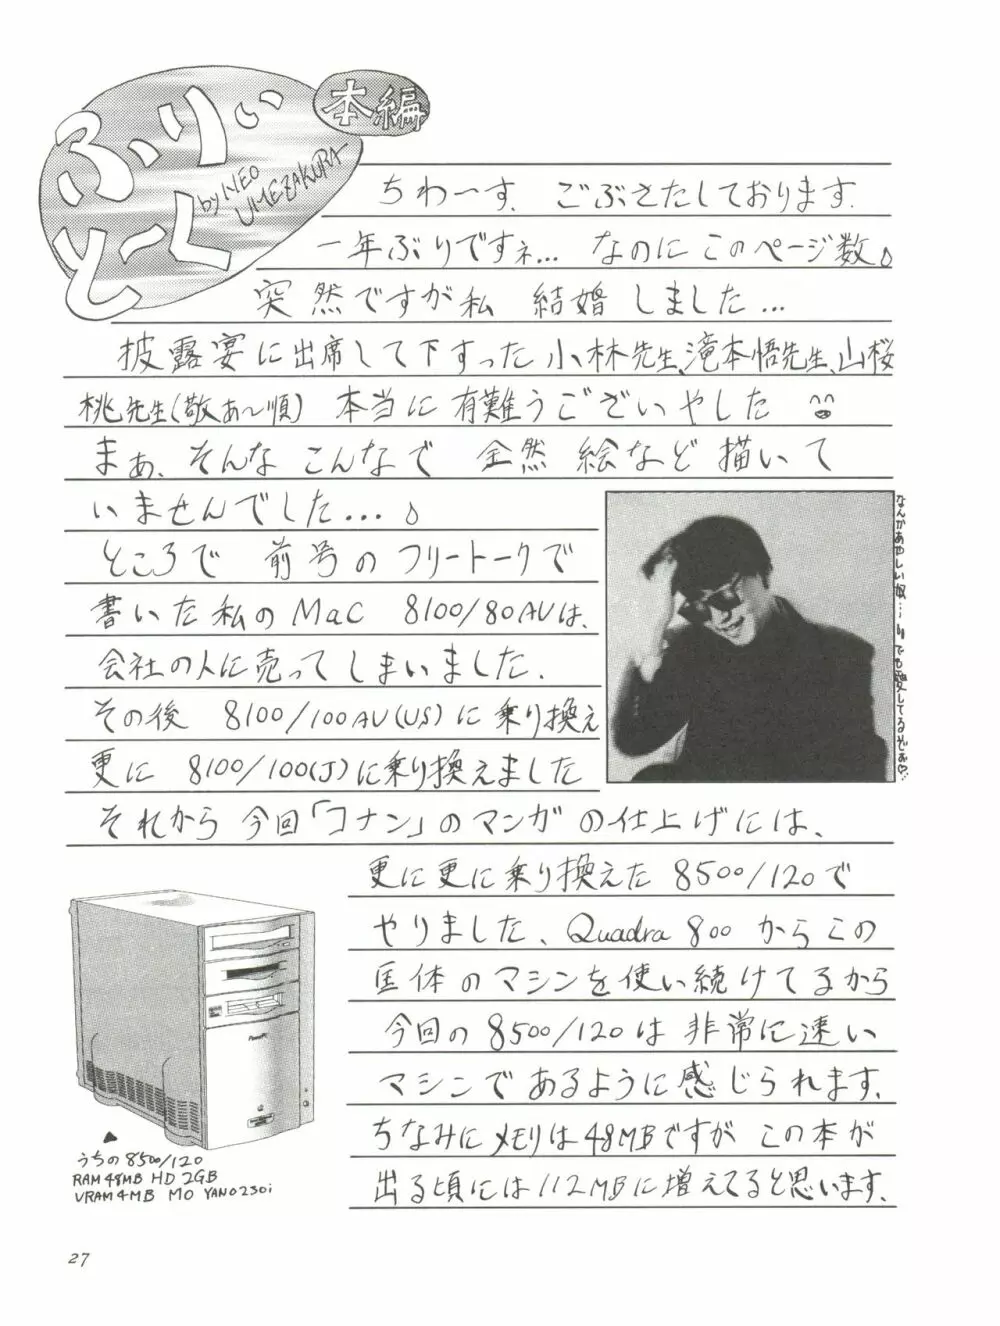 ふりぃとーく
本編
by NEO UMEZAKURA
ちわーす、ごぶさたしております.
一年ぶりですネ... なのにこのページ数♪
突然ですが私 結婚しました...
披露宴に出席して下すった小林先生、滝本悟先生、山桜
桃先生(敬あ〜順) 本当に有難うございやした
まぁ、そんなこんなで 全然絵など描いて
いませんでした...♪
ところで 前号のフリートークで
書いた私のMac 8100/80AVは、
会社の人に売ってしまいました.
その後 8100/100AV(US)に乗り換え
更に 8100/100(J)に乗り換えました
それから今回「コナン」のマンガの仕上げには、
更に更に乗り換えた8500/120で
やりました、Quadra 800からこの
匡体のマシンを使い続けてるから
今回の8500/120は非常に速い
マシンであるように感じられます.
ちなみにメモリは48MBですがこの本が
出る頃には112MBに増えてると思います.
なんかあやしい奴... でも愛してるぞぉ♡
PowerPC
うちの8500/120
RAM 48MB HD 2GB
VRAM 4MB MO YANO230i
27